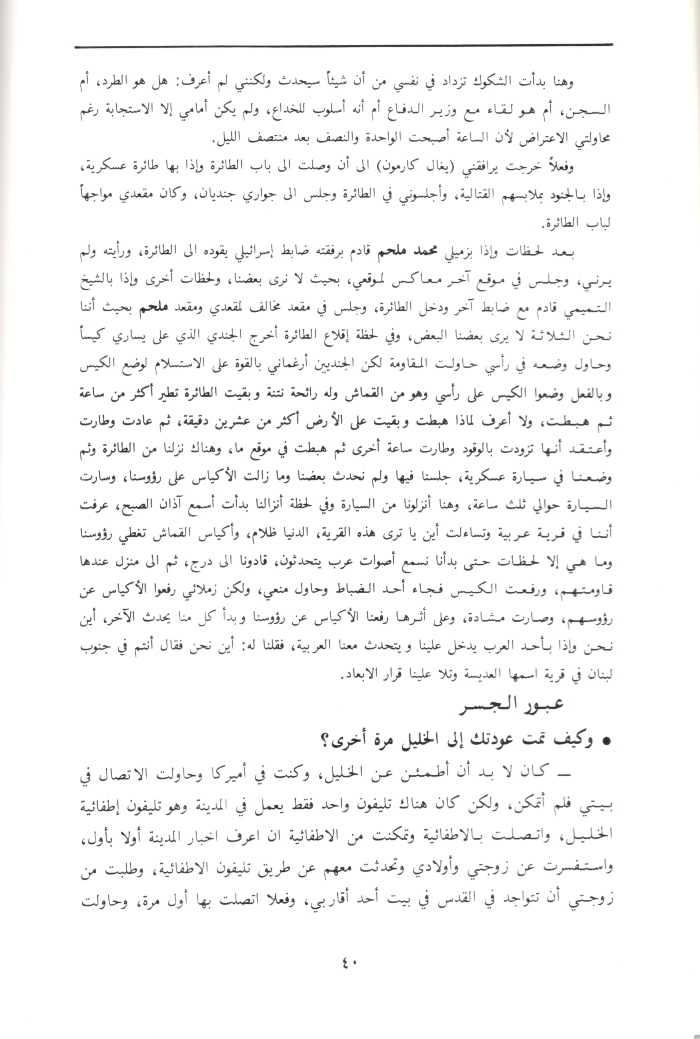 وهنا بدأت الشكوك تزداد في نفسي من أن شيئاً سيحدث ولكنني لم أعرف: هل هو الطرد، أم
السجن، أم هو لقاء مع وزير الدفاع أم أنه أسلوب للخداع، ولم يكن أمامي إلا الاستجابة رغم
محاولتي الاعتراض لأن الساعة أصبحت الواحدة والنصف بعد منتصف الليل.
وفعلاً خرجت يرافقني (يغال كارمون) الى أن وصلت الى باب الطائرة وإذا بها طائرة عسكرية،
وإذا بالجنود بملابسهم القتالية، وأجلسوني في الطائرة وجلس الى جواري جنديان، وكان مقعدي مواجهاً
لباب الطائرة.
بعد لحظات وإذا بزميلي محمد ملحم قادم برفقته ضابط إسرائيلي يقوده الى الطائرة، ورأيته ولم
يرني، وجلس في موقع آخر معاكس لموقعي، بحيث لا نرى بعضنا، ولحظات أخرى وإذا بالشيخ
التميمي قادم مع ضابط آخر ودخل الطائرة، وجلس في مقعد مخالف لمقعدي ومقعد ملحم بحيث أننا
نحن الثلاثة لا يرى بعضنا البعض، وفي لحظة إقلاع الطائرة أخرج الجندي الذي على يساري كيساً
وحاول وضعه في رأسي حاولت المقاومة لكن الجنديين أرغماني بالقوة على الاستسلام لوضع الكيس
وبالفعل وضعوا الكيس على رأسي وهو من القماش وله رائحة نتنة وبقيت الطائرة تطير أكثر من ساعة
ثم هبطت، ولا أعرف لماذا هبطت وبقيت على الأرض أكثر من عشرين دقيقة، ثم عادت وطارت
وأعتقد أنها تزودت بالوقود وطارت ساعة أخرى ثم هبطت في موقع ما، وهناك نزلنا من الطائرة وثم
وضعنا في سيارة عسكرية، جلسنا فيها ولم نحدث بعضنا وما زالت الأكياس على رؤوسنا، وسارت
السيارة حوالي ثلث ساعة، وهنا أنزلونا من السيارة وفي لحظة أنزالنا بدأت أسمع آذان الصبح، عرفت
أننا في قرية عربية وتساءلت أين يا ترى هذه القرية، الدنيا ظلام، وأكياس القماش تغطي رؤوسنا
وما هي إلا لحظات حتى بدأنا نسمع أصوات عرب يتحدثون، قادونا الى درج، ثم الى منزل عندها
قاومتهم، ورفعت الكيس فجاء أحد الضباط وحاول منعي، ولكن زملائي رفعوا الأكياس عن
رؤوسهم، وصارت مشادة، وعلى أثرها رفعنا الأكياس عن رؤوسنا وبدأ كل منا يحدث الآخر، أين
نحن وإذا بأحد العرب يدخل علينا ويتحدث معنا العربية، فقلنا له: أين نحن فقال أنتم في جنوب
لبنان في قرية اسمها العديسة وتلا علينا قرار الابعاد.
عبور الجسر
• وكيف تمت عودتك إلى الخليل مرة أخرى؟
ـ كان لا بد أن أطمئن عن الخليل، وكنت في أميركا وحاولت الاتصال في
بيتي فلم أتمكن، ولكن كان هناك تليفون واحد فقط يعمل في المدينة وهو تليفون إطفائية
الخليل، واتصلت بالاطفائية وتمكنت من الاطفائية ان اعرف اخبار المدينة أولا بأول،
واستفسرت عن زوجتي وأولادي وتحدثت معهم عن طريق تليفون الاطفائية، وطلبت من
زوجتي أن تتواجد في القدس في بيت أحد أقاربي، وفعلا اتصلت بها أول مرة، وحاولت
٤٠